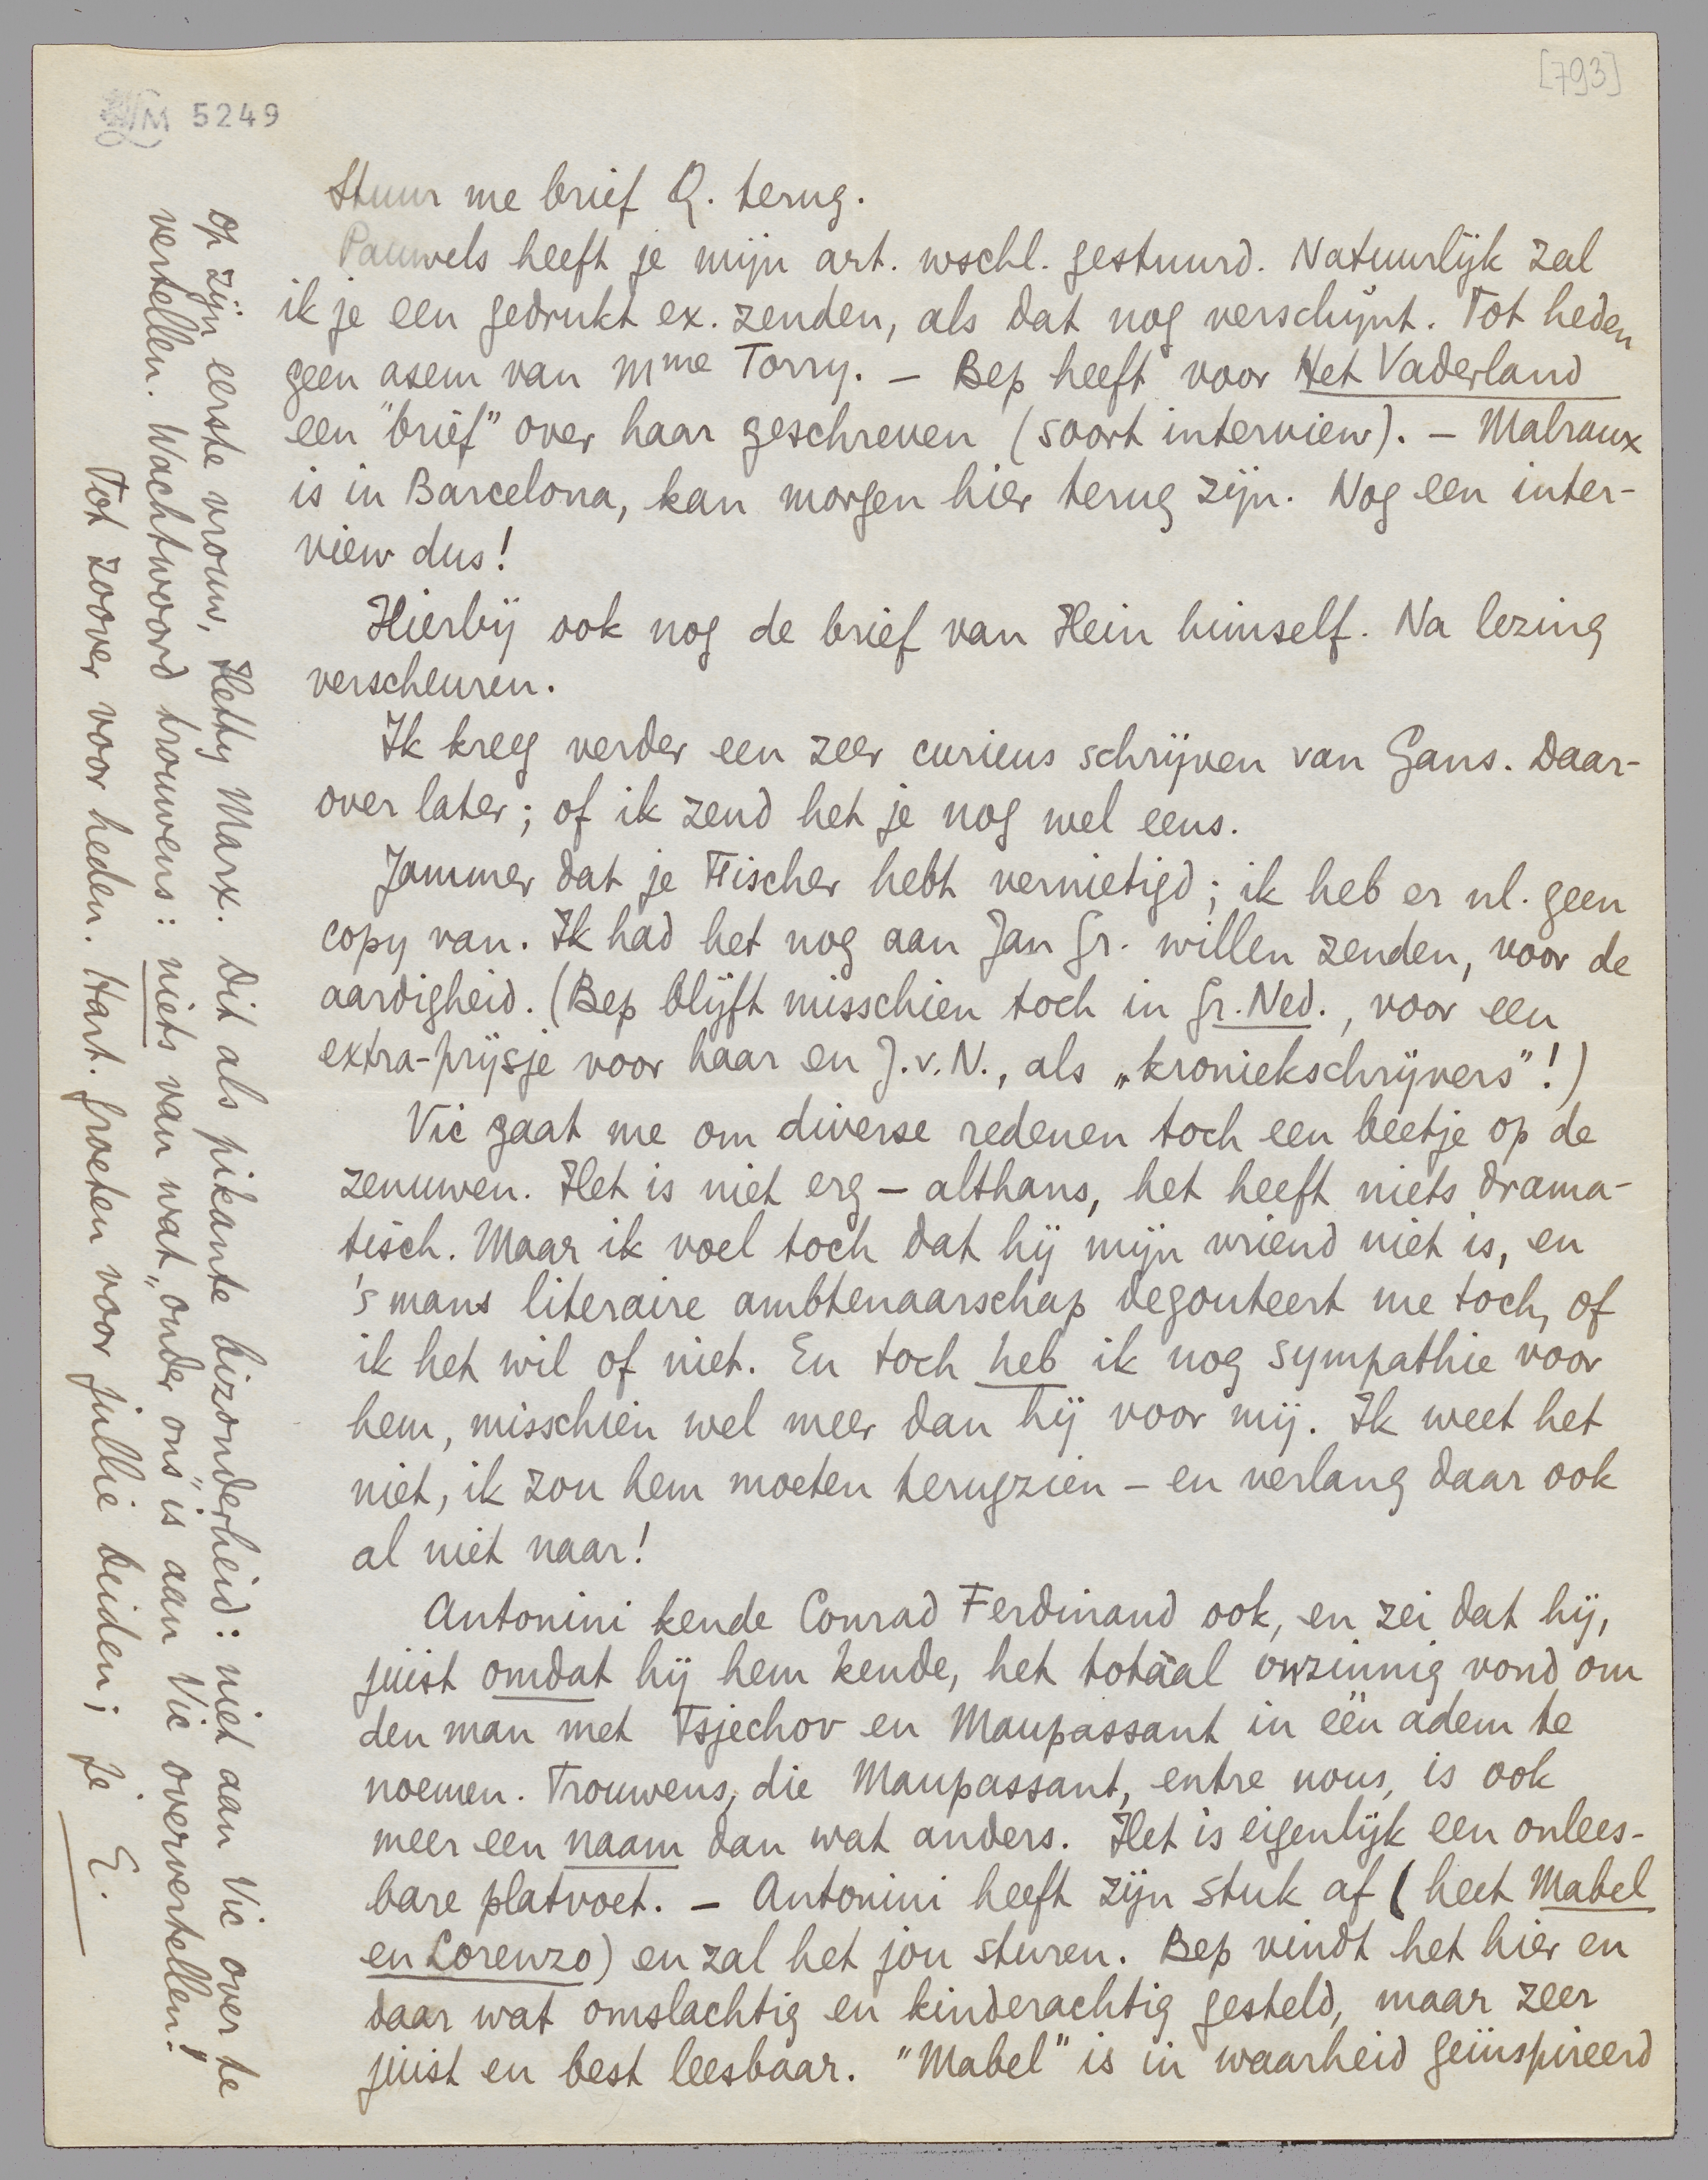 [793]
LM 5249
Stuur me brief Q. terug.
Pauwels heeft je mijn art. wschl. gestuurd. Natuurlijk zal
ik je een gedrukt ex. zenden, als dat nog verschijnt. Tot heden
geen asem van Mme Torry. — Bep heeft voor Het Vaderland
een "brief" over haar geschreven (soort interview). — Malraux
is in Barcelona, kan morgen hier terug zijn. Nog een inter-
view dus!
Hierbij ook nog de brief van Hein himself. Na lezing
verscheuren.
Ik kreeg verder een zeer curieus schrijven van Gans. Daar-
over later; of ik zend het je nog wel eens.
Jammer dat je Fischer hebt vernietigd; ik heb er nl. geen
copy van. Ik had het nog aan Jan Gr. willen zenden, voor de
aardigheid. (Bep blijft misschien toch in Gr. Ned., voor een
extra-prijsje voor haar en J.v.N., als „kroniekschrijvers"!)
Vic gaat me om diverse redenen toch een beetje op de
zenuwen. Het is niet erg — althans, het heeft niets drama-
tisch. Maar ik voel toch dat hij mijn vriend niet is, en
's mans literaire ambtenaarschap degouteert me toch, of
ik het wil of niet. En toch heb ik nog sympathie voor
hem, misschien wel meer dan hij voor mij. Ik weet het
niet, ik zou hem moeten terugzien — en verlang daar ook
al niet naar!
Antonini kende Conrad Ferdinand ook, en zei dat hij,
juist omdat hij hem kende, het totaal onzinnig vond om
den man met Tsjechov en Maupassant in één adem te
noemen. Trouwens, die Maupassant, entre nous, is ook
meer een naam dan wat anders. Het is eigenlijk een onlees-
bare platvoet. — Antonini heeft zijn stuk af (heet Mabel
en Lorenzo) en zal het jou sturen. Bep vindt het hier en
daar wat omslachtig en kinderachtig gesteld, maar zeer
juist en best leesbaar. "Mabel" is in waarheid geïnspireerd
op zijn eerste vrouw, Hetty Marx. Dit als pikante bizonderheid: niet aan Vic over te
vertellen. Wachtwoord trouwens: niets van wat „onder ons" is aan Vic oververtellen!
Tot zoover voor heden. Hart. groeten voor jullie beiden; je E.